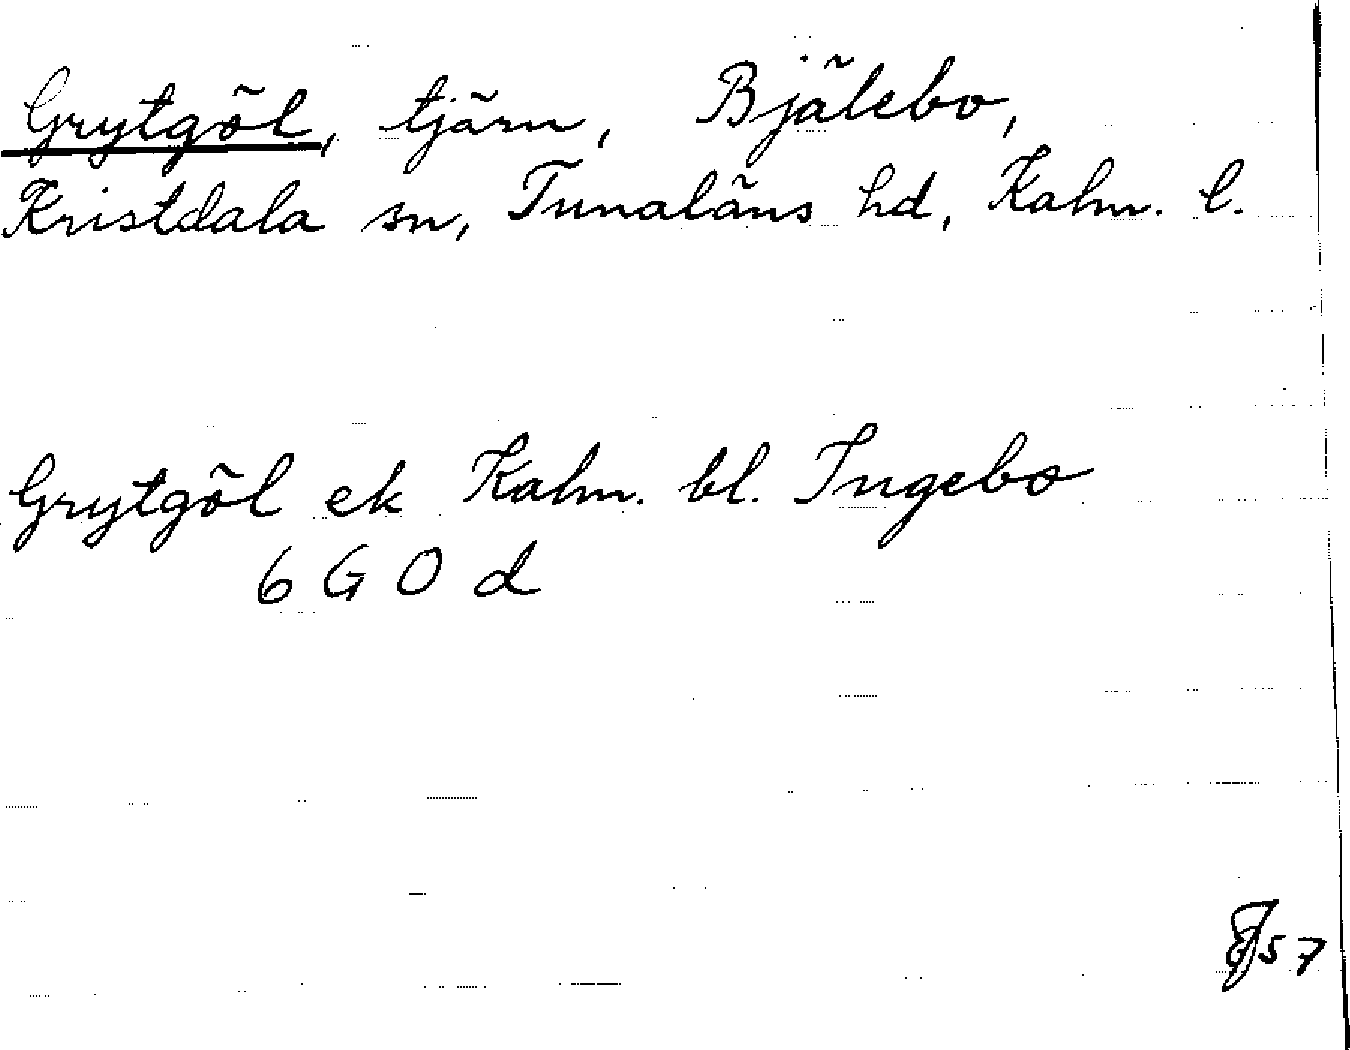 Grytgöl, tjärn, Bjälebo,
Kristdala sn, Tunaläns hd, Kalm. l.
Grytgöl ek Kalm. bl. Ingebo
6 G O d
57